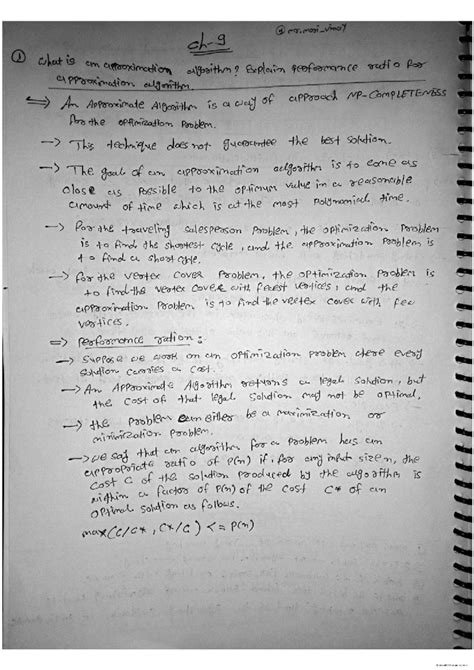 @mr.mori_vinay
ch-9
① what is an approximation algorithm? Explain performance ratio for
approximation algorithm.
⟹ An Approximate Algorithm is a way of approach NP-COMPLETENESS
for the optimization problem.
→ This technique does not guarantee the best solution.
→ The goal of an approximation algorithm is to come as
close as possible to the optimum value in a reasonable
amount of time which is at the most polynomial time.
→ for the traveling salesperson problem, the optimization problem
is to find the shortest cycle, and the approximation problem is
to find a short cycle.
→ for the vertex cover problem, the optimization problem is
to find the vertex cover with fewest vertices, and the
approximation problem is to find the vertex cover with few
vertices.
⟹ Performance ration :-
→ Suppose we work on an optimization problem where every
solution carries a cost.
→ An Approximate Algorithm returns a legal solution, but
the cost of that legal solution may not be optimal.
→ the problem can either be a maximization or
minimization problem.
→ we say that an algorithm for a problem has an
appropriate ratio of P(n) if, for any input size n, the
cost C of the solution produced by the algorithm is
within a factor of P(n) of the cost C* of an
optimal solution as follows.
max(C/C*, C*/C) <= P(n)